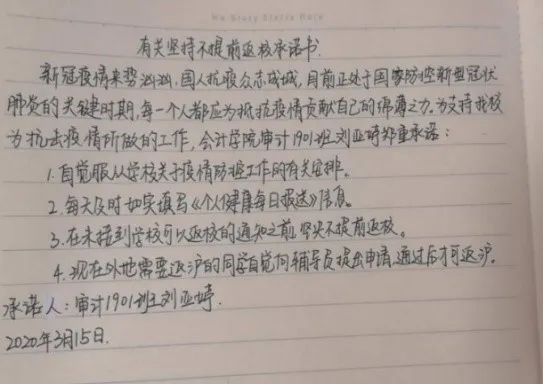 My Story Starts Here
有关坚持不提前返校承诺书
新冠疫情来势汹汹,国人抗疫众志成城,目前正处于国家防控新型冠状
肺炎的关键时期,每一个人都应为抵抗疫情贡献自己的绵薄之力。为支持我校
为抗击疫情所做的工作,会计学院审计1901班刘亚婷郑重承诺:
1.自觉服从学校关于疫情防控工作的有关安排。
2.每天及时如实填写《个人健康每日报送》信息。
3.在未接到学校可以返校的通知之前,坚决不提前返校。
4.现在外地需要返沪的同学自觉向辅导员提出申请,通过后才可返沪。
承诺人:审计1901班刘亚婷.
2020年3月15日.